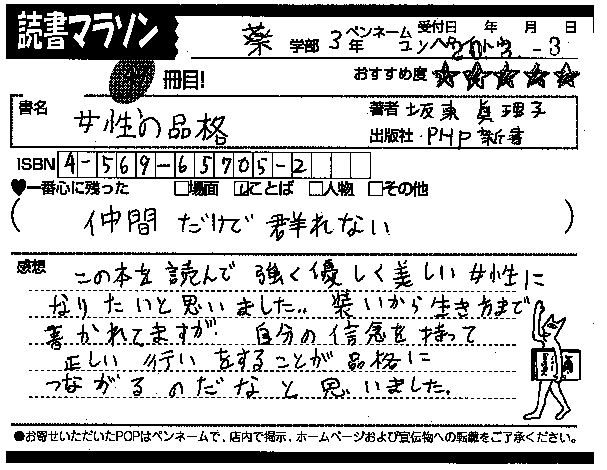 読書マラソン
薬 学部 3年 ペンネーム 受付日 年 月 日
冊目! おすすめ度 ★★★★★
書名 女性の品格 著者 坂東 眞理子
出版社 PHP新書
ISBN 4-569-65705-2
♥一番心に残った □場面 ☑ことば □人物 □その他
(仲間だけで群れない)
感想 この本を読んで強く優しく美しい女性に
なりたいと思いました。装いから生き方まで
書かれてますが、自分の信念を持って
正しい行いをすることが品格に
つながるのだなと思いました。
●お寄せいただいたPOPはペンネームで、店内で掲示、ホームページおよび宣伝物への転載をご了承ください。